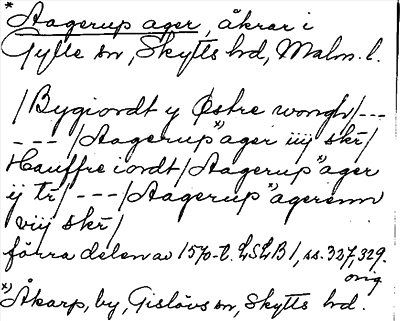 * Aagerup ager, åkrar i
Gylle sn, Skytts hd, Malm. l.
/Bygiordt y Østre wongh/---
---/Aagerup*)ager iiij skr/
Hauffre iordt/Aagerup*)ager
ij tr/---/Aagerup*)agerenn
viij skr/
förra delen av 1570-t. LSLB 1, ss. 327, 329.
orig.
*) Åkarp, by, Gislövs sn, Skytts hd.